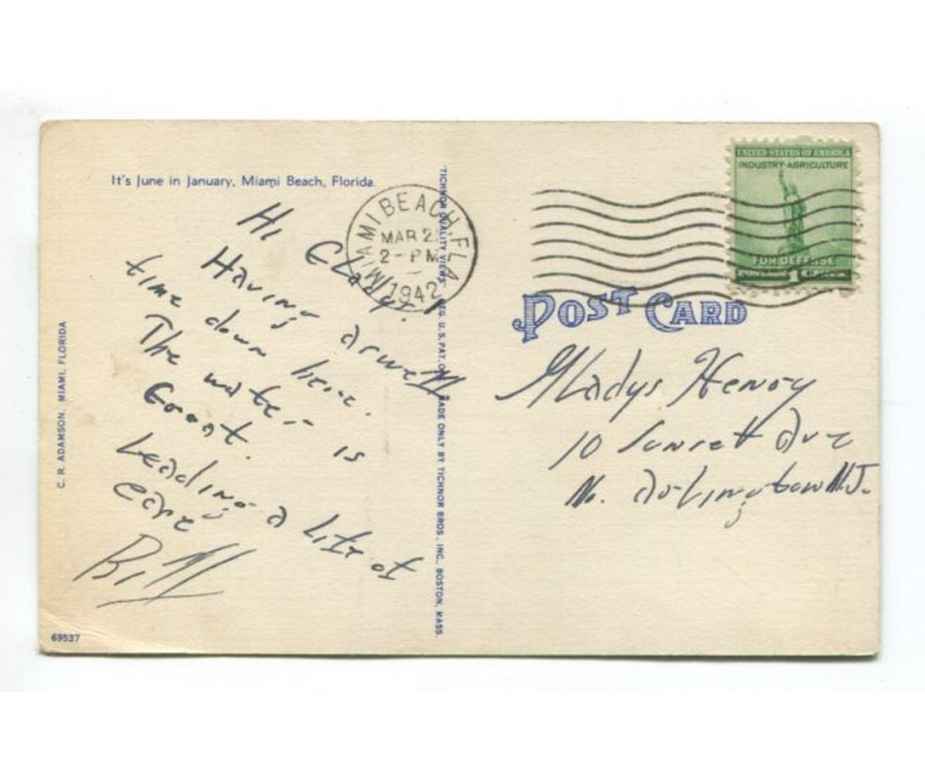 It's June in January, Miami Beach, Florida.
Hi
Having a swell
time down here.
The water is
Great.
Leading a life of
ease
Bill
C. R. ADAMSON, MIAMI, FLORIDA
69537
MIAMI BEACH, FLA.
MAR 2
2 - PM
1942
TICHNOR QUALITY VIEWS REG. U.S. PAT. MADE ONLY BY TICHNOR BROS., INC., BOSTON, MASS.
UNITED STATES OF AMERICA
INDUSTRY·AGRICULTURE
FOR DEFENSE
1
POST CARD
Gladys Henry
10 Sunset Ave
No. Arlington N.J.